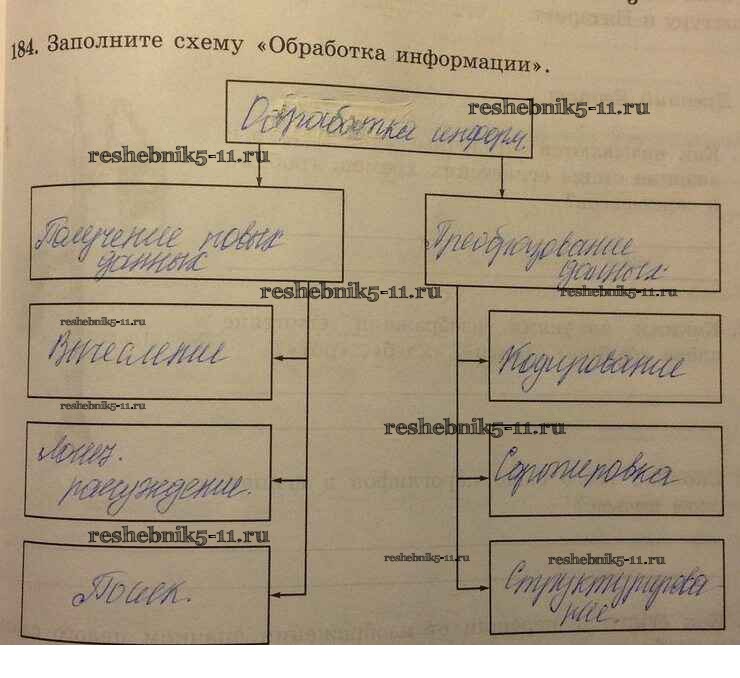 184. Заполните схему «Обработка информации».
reshebnik5-11.ru
Обработка информ.
reshebnik5-11.ru
Получение новых
данных
Преобразование
данных
reshebnik5-11.ru
reshebnik5-11.ru
reshebnik5-11.ru
Вычесление
Кодирование
reshebnik5-11.ru
reshebnik5-11.ru
рассуждение.
Сортировка
reshebnik5-11.ru
reshebnik5-11.ru
reshebnik5-11.ru
Поиск.
Структурирова-
ние.